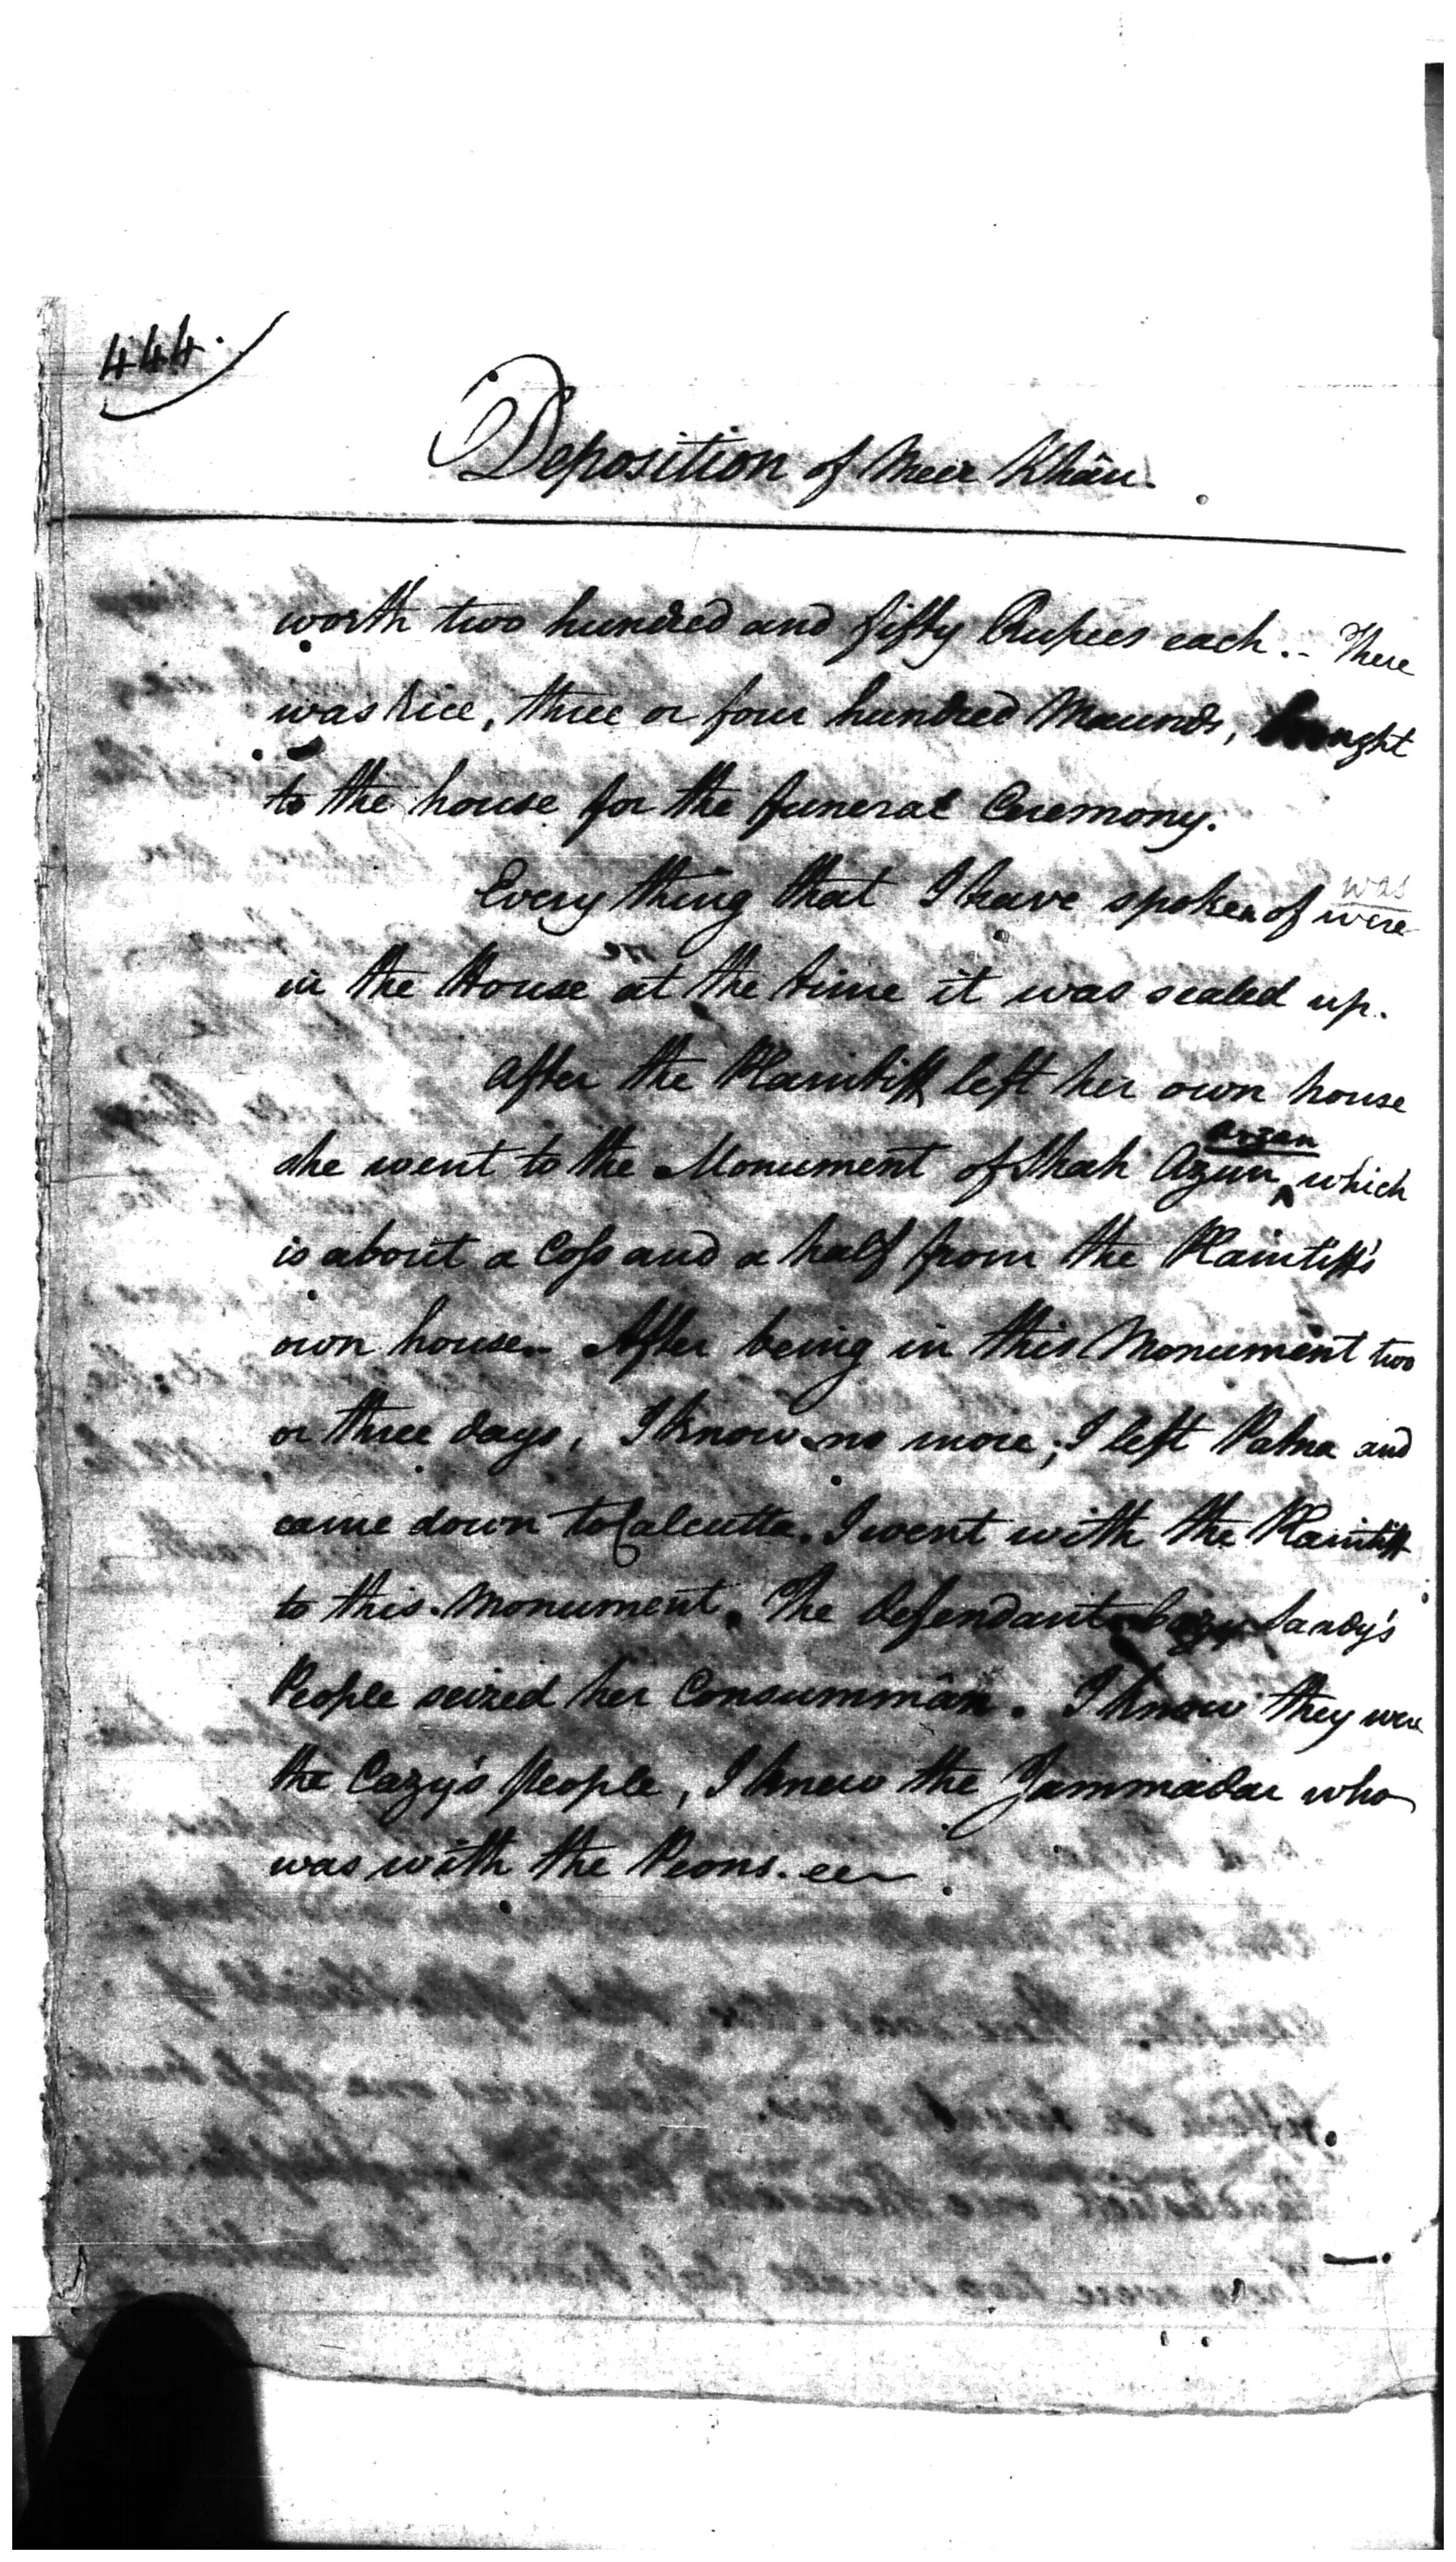 444.
Deposition of Meer Khân.
worth two hundred and fifty Rupees each. - There
was Rice, three or four hundred Maunds, brought
to the house for the funeral Ceremony.
was
Every thing that I have spoken of were
in the House at the time it was sealed up.
After the Plaintiff left her own house
arzan
she went to the Monument of Shah Azun, which
is about a Coss and a half from the Plaintiff's
own house. - After being in this Monument two
or three days, I know no more; I left Patna and
came down to Calcutta. I went with the Plaintiff
to this Monument. The Defendant Cazy Sandy's
People seized her Consummân. I know they were
the Cazy's People, I knew the Jammadar who
was with the Peons.